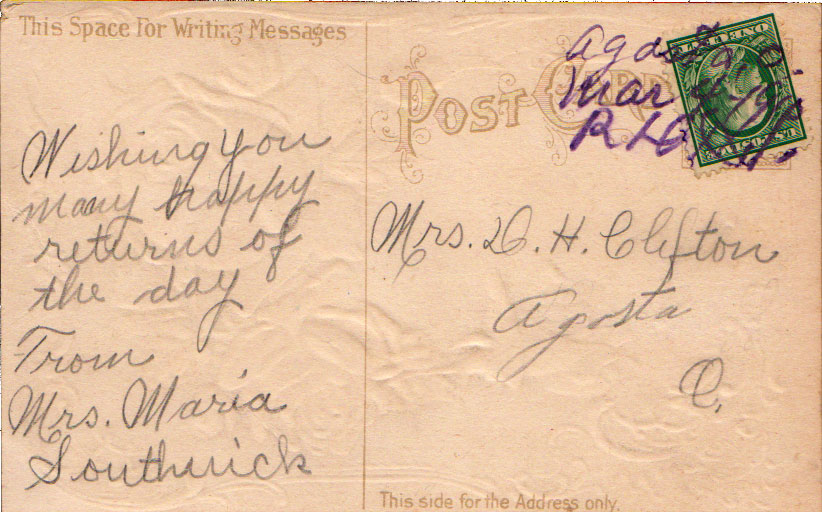 This Space For Writing Messages
POST CARD
Agosta, O.
Mar
Wishing you
many happy
returns of
the day
From
Mrs. Maria
Southwick
Mrs. D. H. Clifton
Agosta
O.
This side for the Address only.